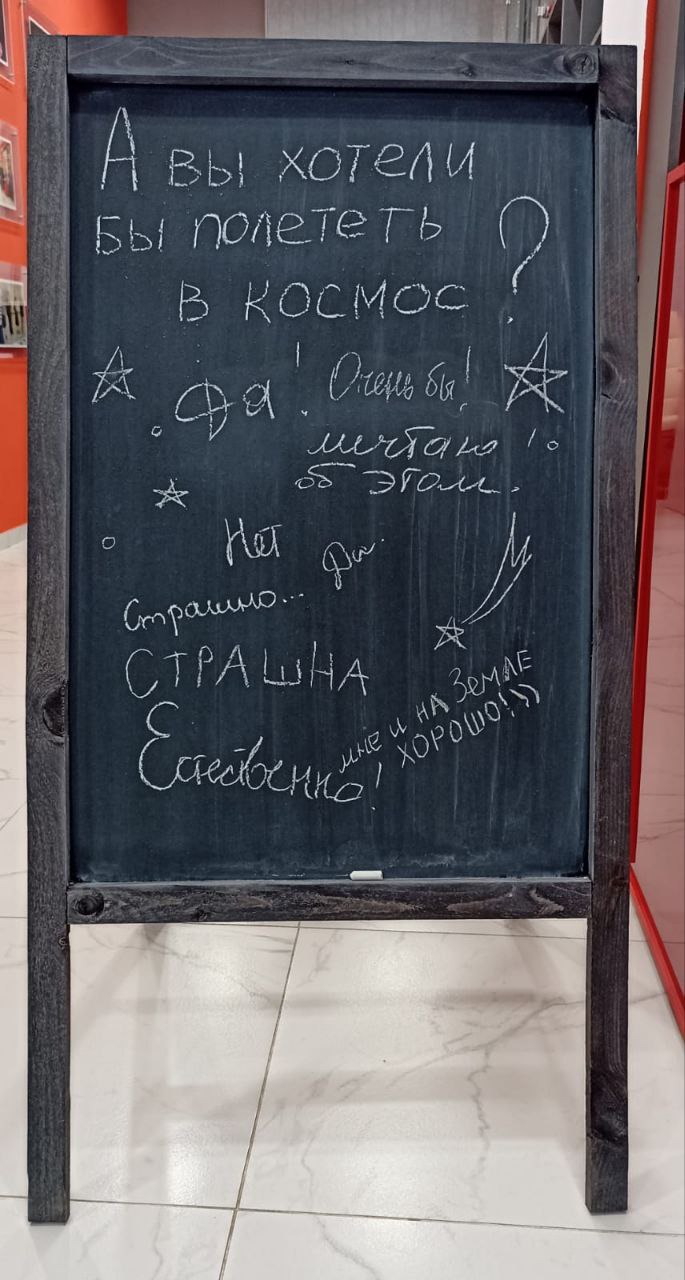 А вы хотели
бы полететь ?
в космос
Да! Очень бы!
мечтаю!
об этом.
Нет
Да.
Страшно...
СТРАШНА
мне и на Земле
ХОРОШО!))
Естественно!